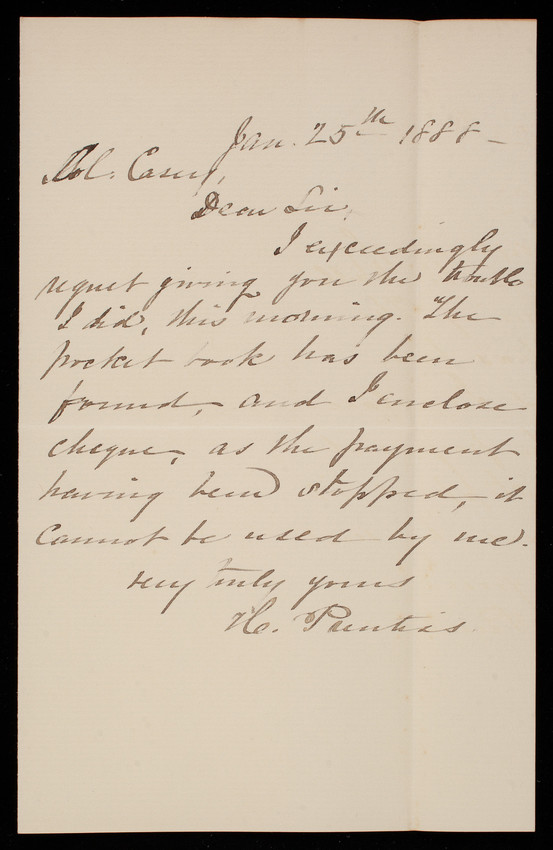 Jan. 25th 1888 -
Col. Casey,
Dear Sir,
I exceedingly
regret giving you the trouble
I did, this morning. The
pocket book has been
found, and I enclose
cheque, as the payment
having been stopped, it
cannot be used by me.
very truly yours
H. Prentiss